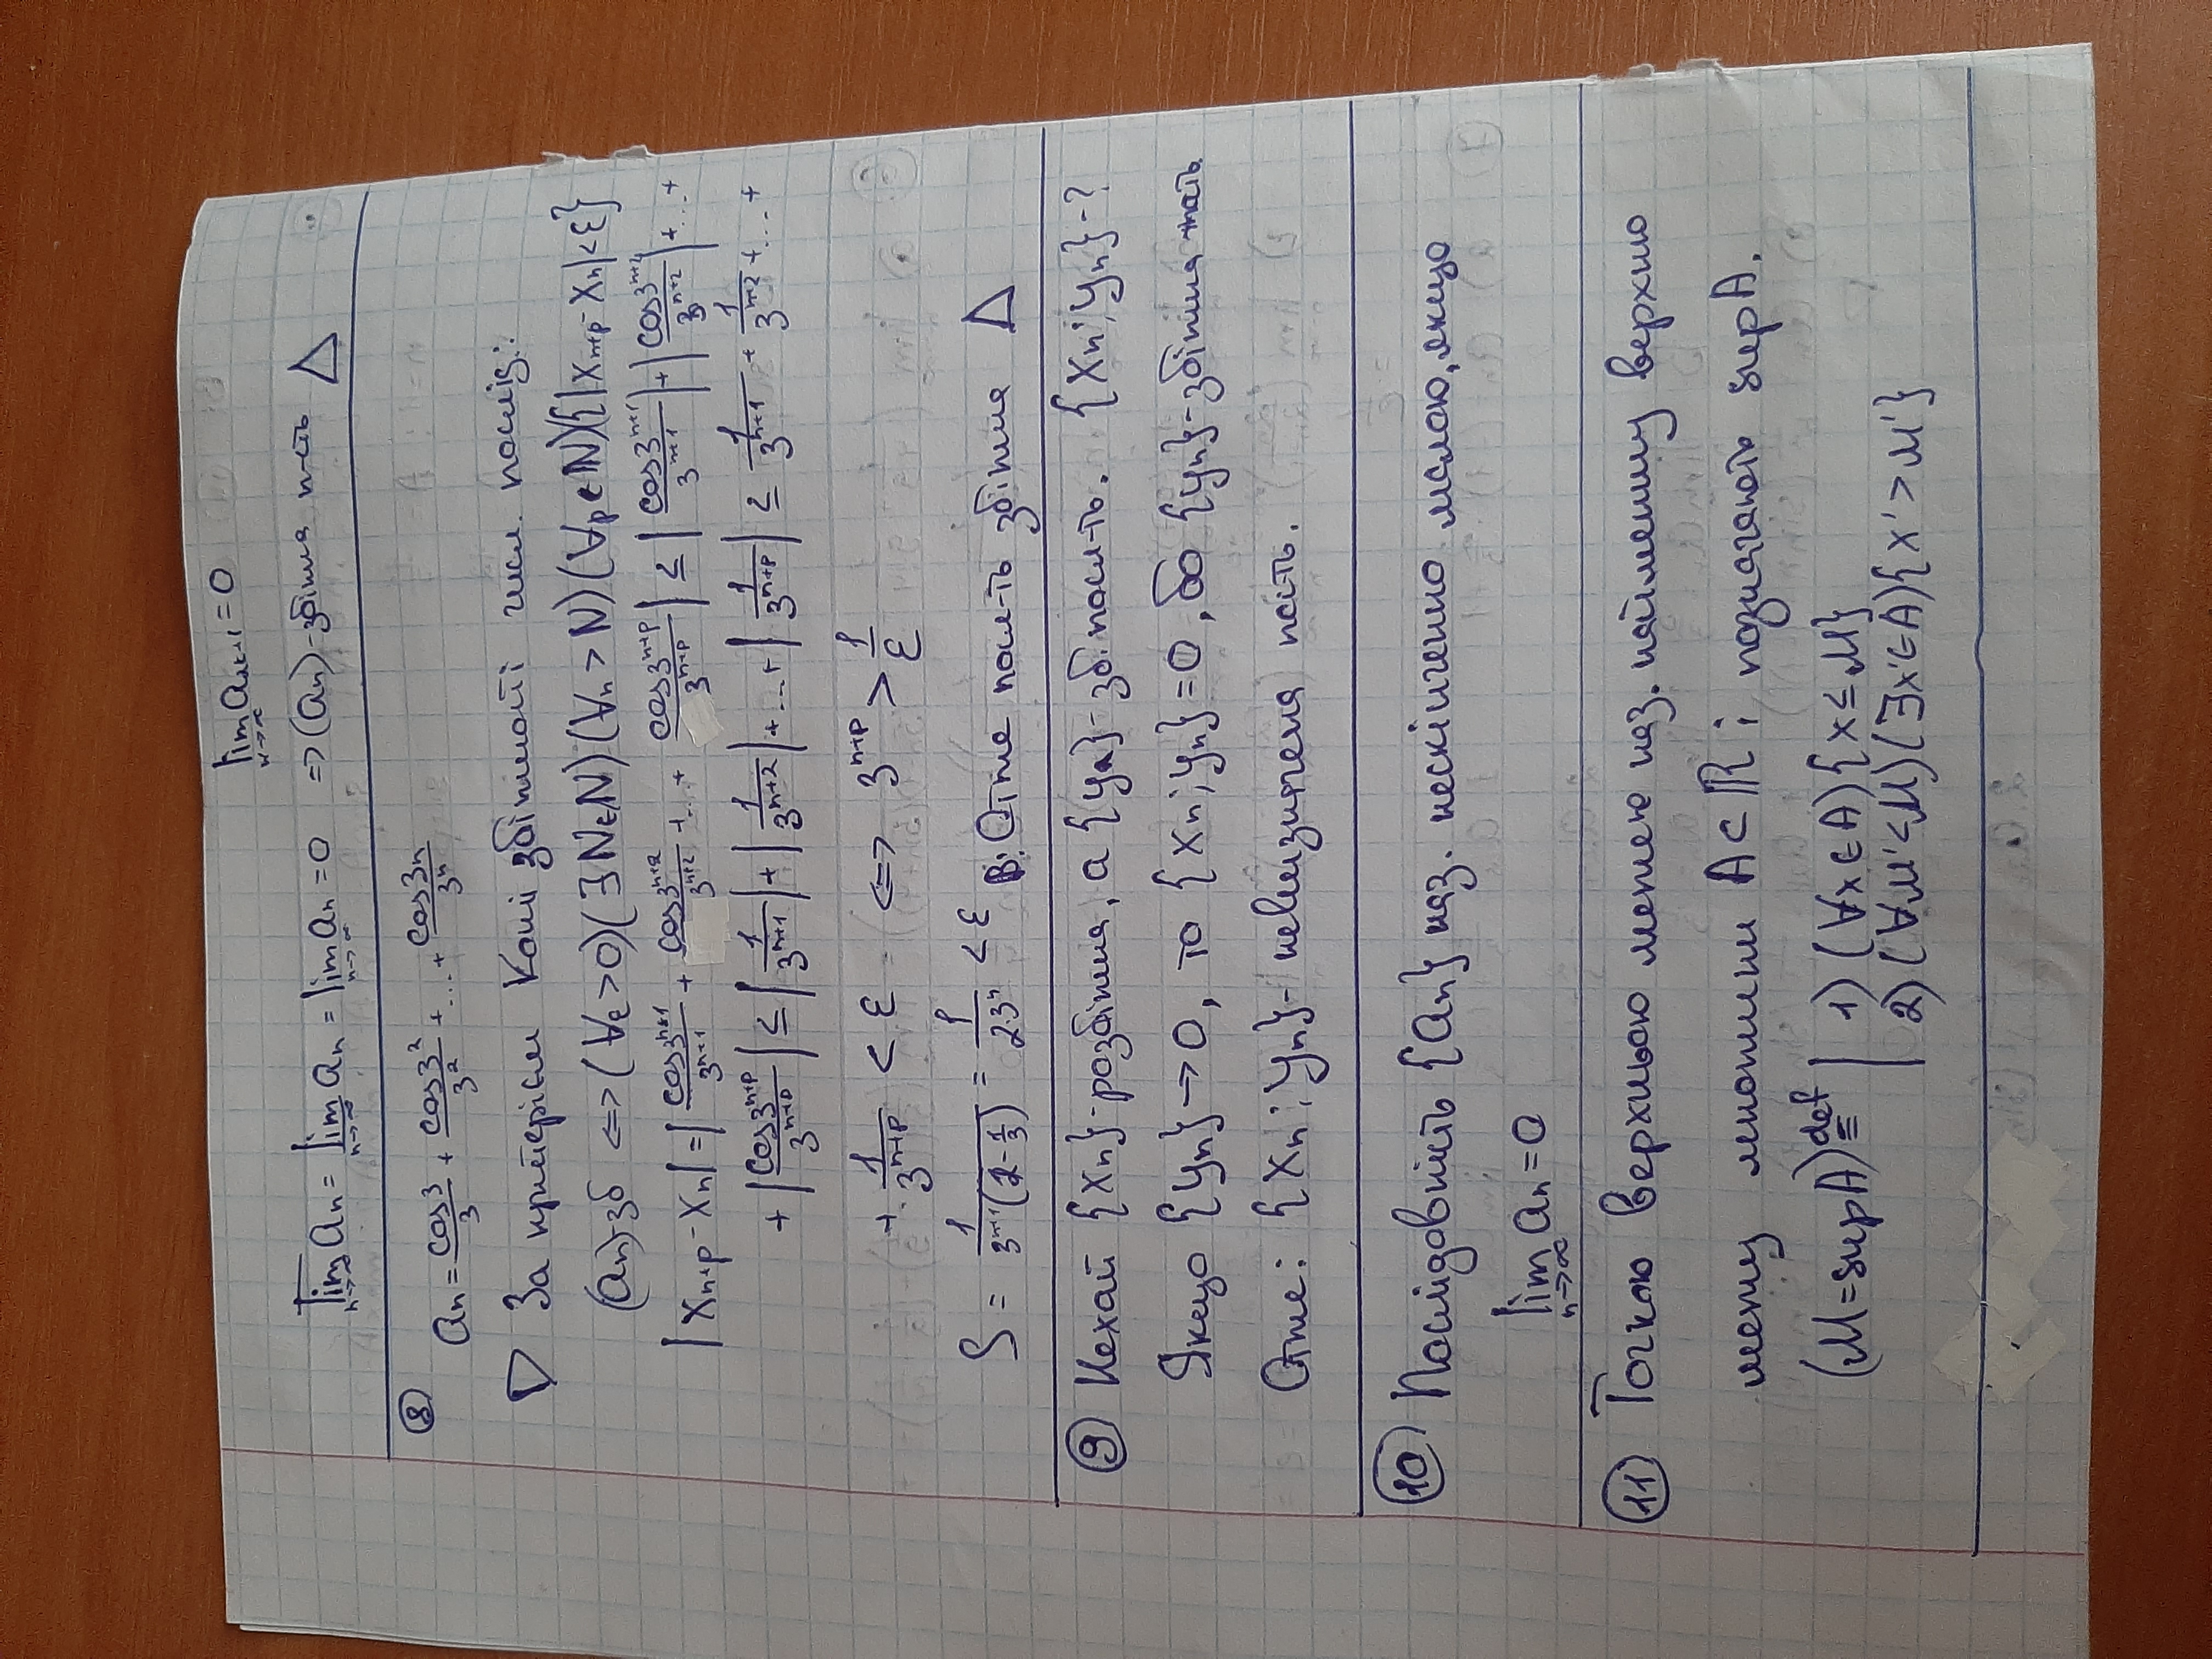 lim a₂ₖ₊₁ = 0
n→∞
lim aₙ = lim aₙ = lim aₙ = 0 ⇒ (aₙ)-збіжна п-сть △
n→∞ n→∞ n→∞
⑧ aₙ = cos3/3 + cos3²/3² + ... + cos3n/3ⁿ
▷ За критерієм Коші збіжності числ. послід.:
(aₙ)-зб ⇔ (∀ε>0)(∃N∈ℕ)(∀n>N)(∀p∈ℕ){|xₙ₊ₚ-xₙ|<ε}
|xₙ₊ₚ-xₙ| = |cos3ⁿ⁺¹/3ⁿ⁺¹ + cos3ⁿ⁺²/3ⁿ⁺² + ... + cos3ⁿ⁺ᵖ/3ⁿ⁺ᵖ| ≤ |cos3ⁿ⁺¹/3ⁿ⁺¹| + |cos3ⁿ⁺²/3ⁿ⁺²| + ... +
+ |cos3ⁿ⁺ᵖ/3ⁿ⁺ᵖ| ≤ |1/3ⁿ⁺¹| + |1/3ⁿ⁺²| + ... + |1/3ⁿ⁺ᵖ| ≥ 1/3ⁿ⁺¹ + 1/3ⁿ⁺² + ... +
+ 1/3ⁿ⁺ᵖ < ε ⇔ 3ⁿ⁺ᵖ > 1/ε
S = 1/3ⁿ⁺¹(1-1/3) = 1/2·3ⁿ < ε В: Отже посл-ть збіжна △
⑨ Нехай {xₙ}-розбіжна, а {yₙ}-зб. посл-ть. {xₙ; yₙ}-?
Якщо {yₙ}→0, то {xₙ; yₙ}=0, бо {yₙ}-збіжна
Отже: {xₙ; yₙ}- невизначена псть.
⑩ Послідовність {aₙ} наз. нескінченно малою, якщо
lim aₙ = 0
n→∞
⑪ Точкою верхньою межею наз. найменшу верхню
межу множини A⊂ℝ і позначають supA.
(M=supA) def≡ | 1) (∀x∈A){x≤M}
2) (∀M'<M)(∃x'∈A){x'>M'}